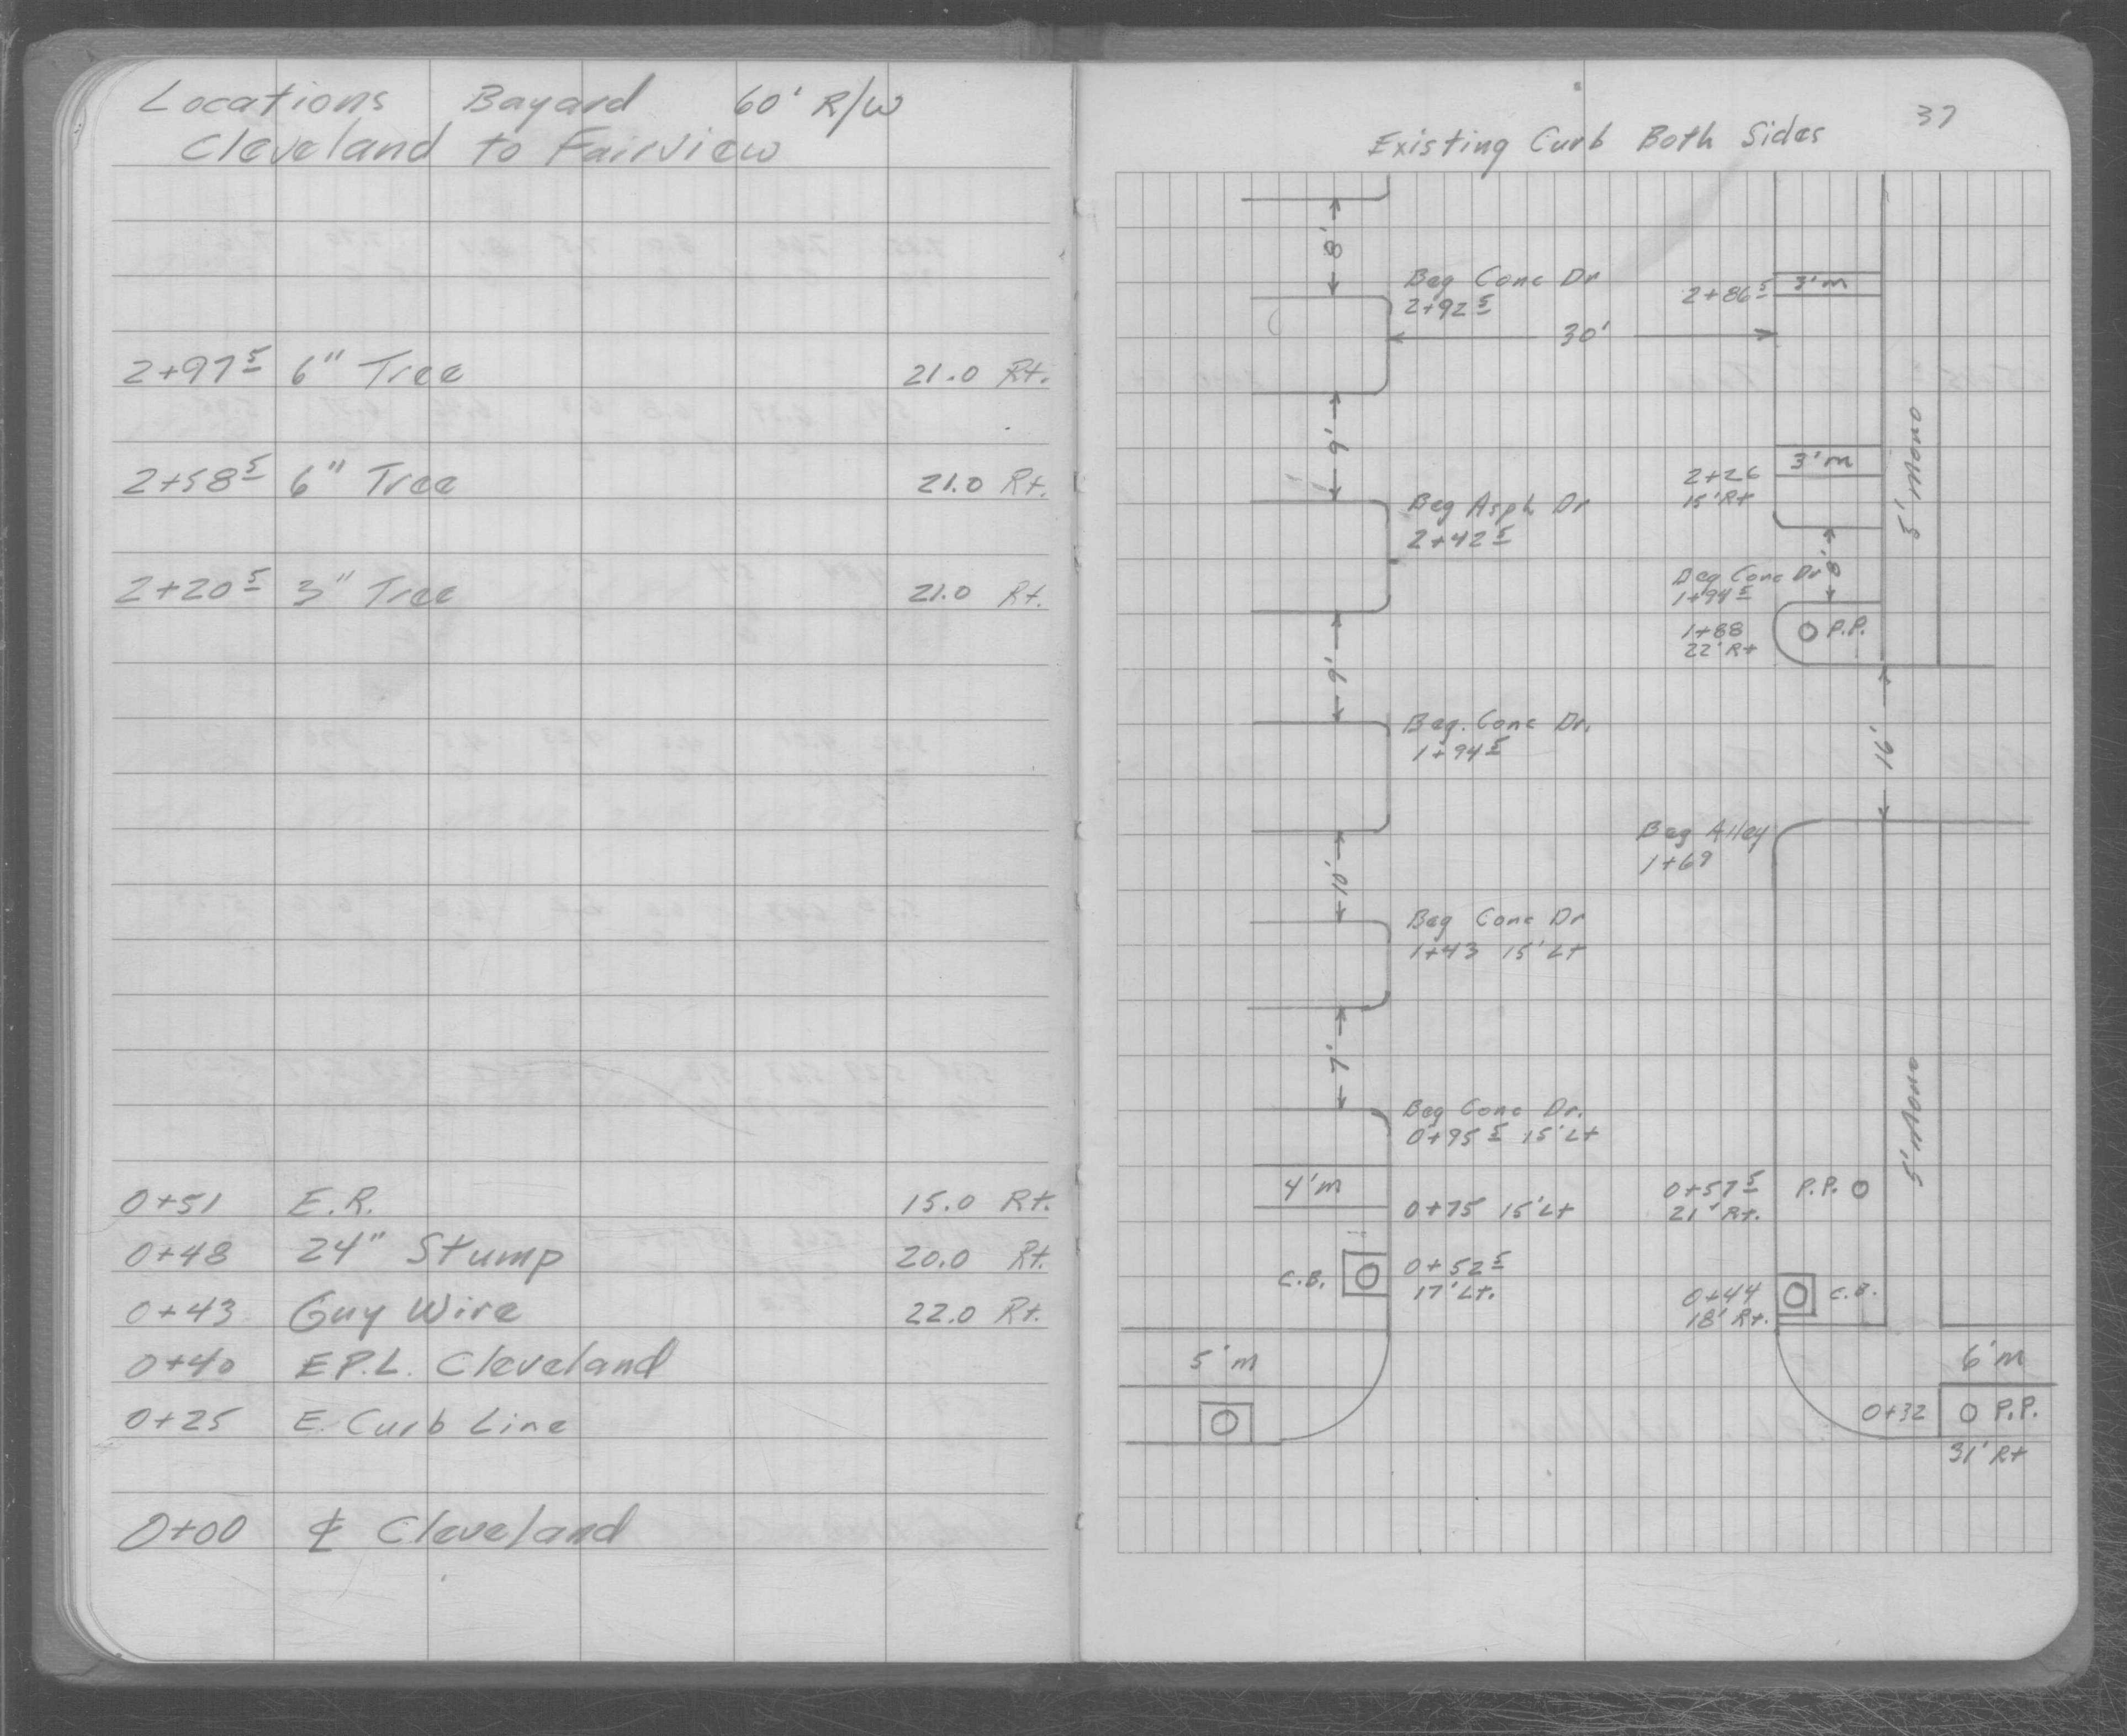 Locations Bayard 60' R/W
Cleveland to Fairview
2+97 5 6" Tree 21.0 Rt.
2+58 5 6" Tree 21.0 Rt.
2+20 5 3" Tree 21.0 Rt.
0+51 E.R. 15.0 Rt.
0+48 24" Stump 20.0 Rt.
0+43 Guy Wire 22.0 Rt.
0+40 E P.L. Cleveland
0+25 E. Curb Line
0+00 ℄ Cleveland
37
Existing Curb Both Sides
8'
Beg Conc Dr
2+92 5
2+86 5
3'm
30'
9'
3'm
2+26
15' Rt
5' Mono
Beg Asph Dr
2+42 5
8'
Beg Conc Dr
1+94 5
1+88
22' Rt
P.P.
9'
Beg. Conc Dr.
1+94 5
16'
Beg Alley
1+69
10'
Beg Conc Dr
1+43 15' Lt
7'
Beg Conc Dr.
0+95 5 15' Lt
5' Mono
4'm
0+75 15' Lt
0+57 5
21' Rt.
P.P.
C.B.
0+52 5
17' Lt.
0+44
18' Rt.
C.B.
5'm
6'm
0+32
P.P.
31' Rt